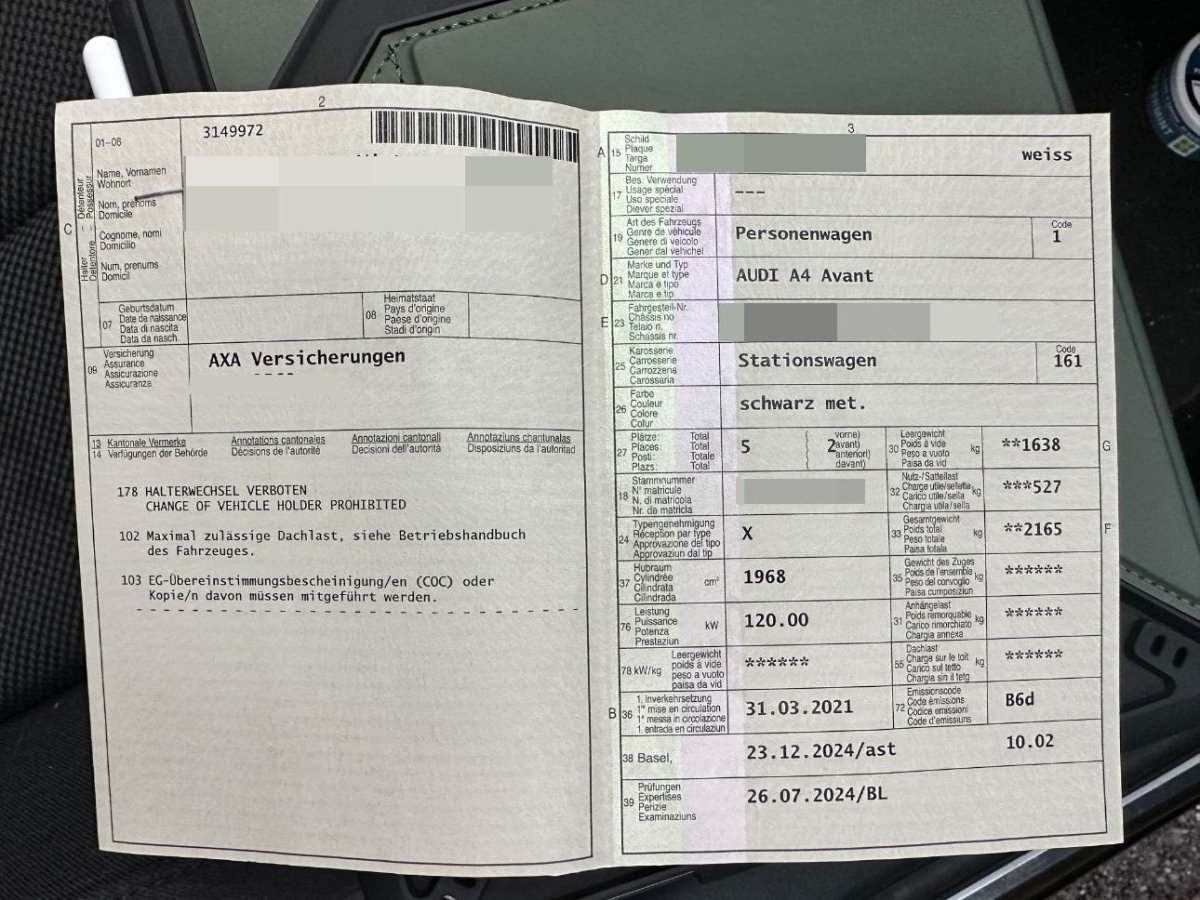 2
01-06
3149972
Détenteur
Possessur
C
Halter
Detentore
Name, Vornamen
Wohnort
Nom, prénoms
Domicile
Cognome, nomi
Domicilio
Num, prenums
Domicil
07
Geburtsdatum
Date de naissance
Data di nascita
Data da nasch.
08
Heimatstaat
Pays d'origine
Paese d'origine
Stadi d'origin
09
Versicherung
Assurance
Assicurazione
Assicuranza
AXA Versicherungen
----
13 Kantonale Vermerke
14 Verfügungen der Behörde
Annotations cantonales
Décisions de l'autorité
Annotazioni cantonali
Decisioni dell'autorità
Annotaziuns chantunalas
Disposiziuns da l'autoritad
178 HALTERWECHSEL VERBOTEN
CHANGE OF VEHICLE HOLDER PROHIBITED
102 Maximal zulässige Dachlast, siehe Betriebshandbuch
des Fahrzeuges.
103 EG-Übereinstimmungsbescheinigung/en (COC) oder
Kopie/n davon müssen mitgeführt werden.
3
A 15
Schild
Plaque
Targa
Numer
weiss
17
Bes. Verwendung
Usage spécial
Uso speciale
Diever spezial
---
19
Art des Fahrzeugs
Genre de véhicule
Genere di veicolo
Gener dal vehichel
Personenwagen
Code
1
D 21
Marke und Typ
Marque et type
Marca e tipo
Marca e tip
AUDI A4 Avant
E 23
Fahrgestell-Nr.
Châssis no
Telaio n.
Schassis nr.
25
Karosserie
Carrosserie
Carrozzeria
Carossaria
Stationswagen
Code
161
26
Farbe
Couleur
Colore
Colur
schwarz met.
27
Plätze: Total
Places: Total
Posti: Totale
Plazs: Total
5
2
vorne)
avant)
anteriori)
davant)
30
Leergewicht
Poids à vide
Peso a vuoto
Paisa da vid
kg
**1638
G
18
Stammnummer
N° matricule
N. di matricola
Nr. da matricla
32
Nutz-/Sattellast
Charge utile/sellette
Carico utile/sella
Chargia utila/sella
kg
***527
24
Typengenehmigung
Réception par type
Approvazione del tipo
Approvaziun dal tip
X
33
Gesamtgewicht
Poids total
Peso totale
Paisa totala
kg
**2165
F
37
Hubraum
Cylindrée
Cilindrata
Cilindrada
cm³
1968
35
Gewicht des Zuges
Poids de l'ensemble
Peso del convoglio
Paisa cumposiziun
kg
******
76
Leistung
Puissance
Potenza
Prestaziun
kW
120.00
31
Anhängelast
Poids remorquable
Carico rimorchiato
Chargia annexa
kg
******
78 kW/kg
Leergewicht
poids à vide
peso a vuoto
paisa da vid
******
55
Dachlast
Charge sur le toit
Carico sul tetto
Chargia sin il tetg
kg
******
B 36
1. Inverkehrsetzung
1re mise en circulation
1a messa in circolazione
1. entrada en circulaziun
31.03.2021
72
Emissionscode
Code émissions
Codice emissioni
Code d'emissiuns
B6d
38 Basel,
23.12.2024/ast
10.02
39
Prüfungen
Expertises
Perizie
Examinaziuns
26.07.2024/BL